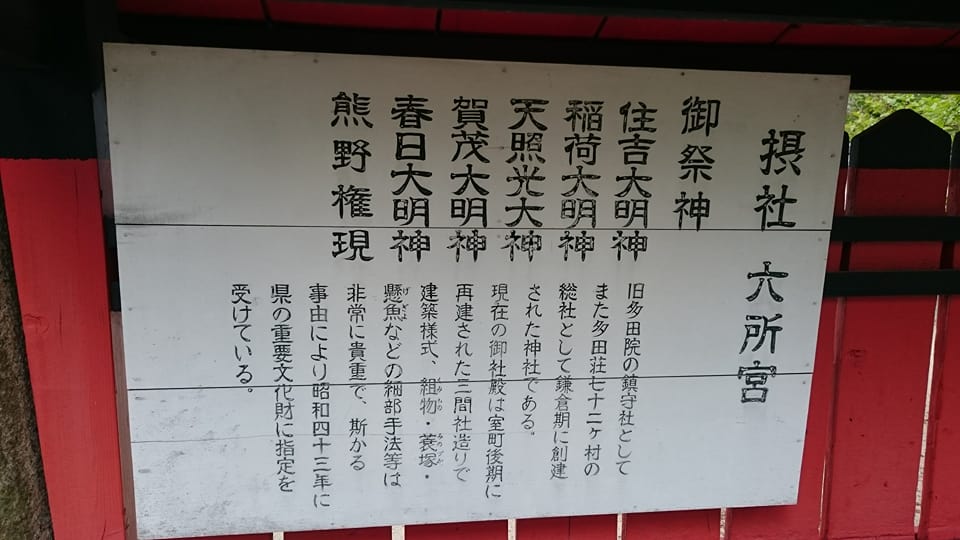 摂社 六所宮
御祭神
住吉大明神
稲荷大明神
天照光大神
賀茂大明神
春日大明神
熊野権現
旧多田院の鎮守社として
また多田荘七十二ヶ村の
総社として鎌倉期に創建
された神社である。
現在の御社殿は室町後期に
再建された三間社造りで
建築様式、組物・蓑塚・
懸魚などの細部手法等は
非常に貴重で、斯かる
事由により昭和四十三年に
県の重要文化財に指定を
受けている。